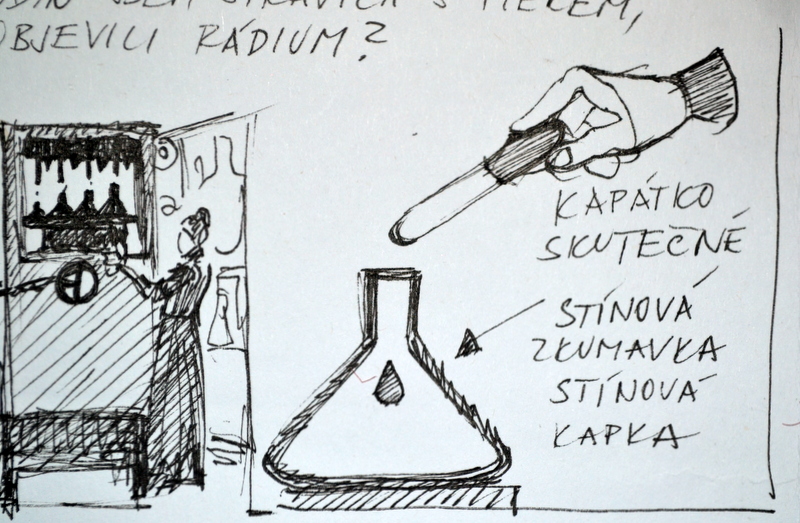 JSEM STRÁVILA S
OBJEVILI RÁDIUM?
KAPÁTKO
SKUTEČNÉ
STÍNOVÁ
ZKUMAVKA
STÍNOVÁ
KAPKA